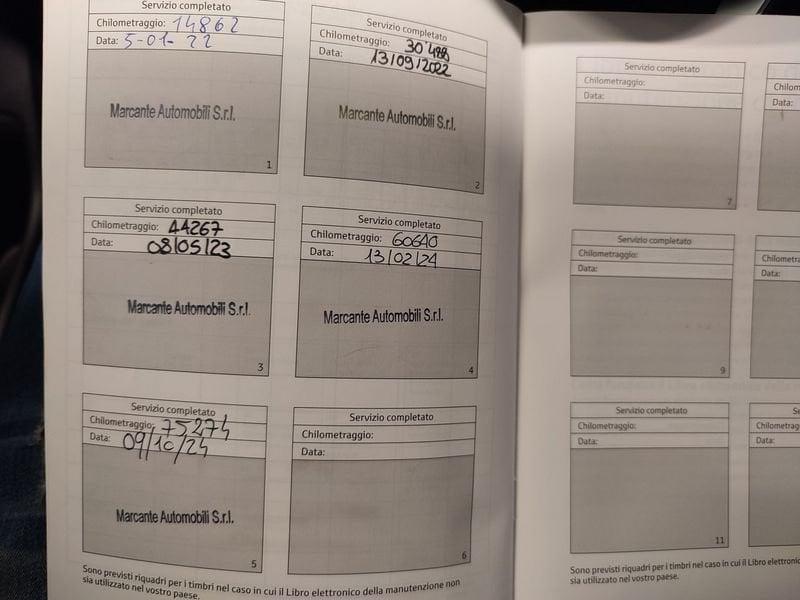 Servizio completato
Chilometraggio: 14862
Data: 5-01-22
Marcante Automobili S.r.l.
1
Servizio completato
Chilometraggio: 30'488
Data: 13/09/2022
Marcante Automobili S.r.l.
2
Servizio completato
Chilometraggio: 44267
Data: 08/05/23
Marcante Automobili S.r.l.
3
Servizio completato
Chilometraggio: 60640
Data: 13/02/24
Marcante Automobili S.r.l.
4
Servizio completato
Chilometraggio: 75274
Data: 09/10/24
Marcante Automobili S.r.l.
5
Servizio completato
Chilometraggio:
Data:
6
Sono previsti riquadri per i timbri nel caso in cui il Libro elettronico della manutenzione non
sia utilizzato nel vostro paese.
Servizio completato
Chilometraggio:
Data:
7
Chilom
Data:
Servizio completato
Chilometraggio:
Data:
9
Chilometra
Data:
Servizio completato
Chilometraggio:
Data:
11
Chilometra
Data:
Sono previsti riquadri per i timbri nel caso in cui il Libro elettronic
sia utilizzato nel vostro paese.